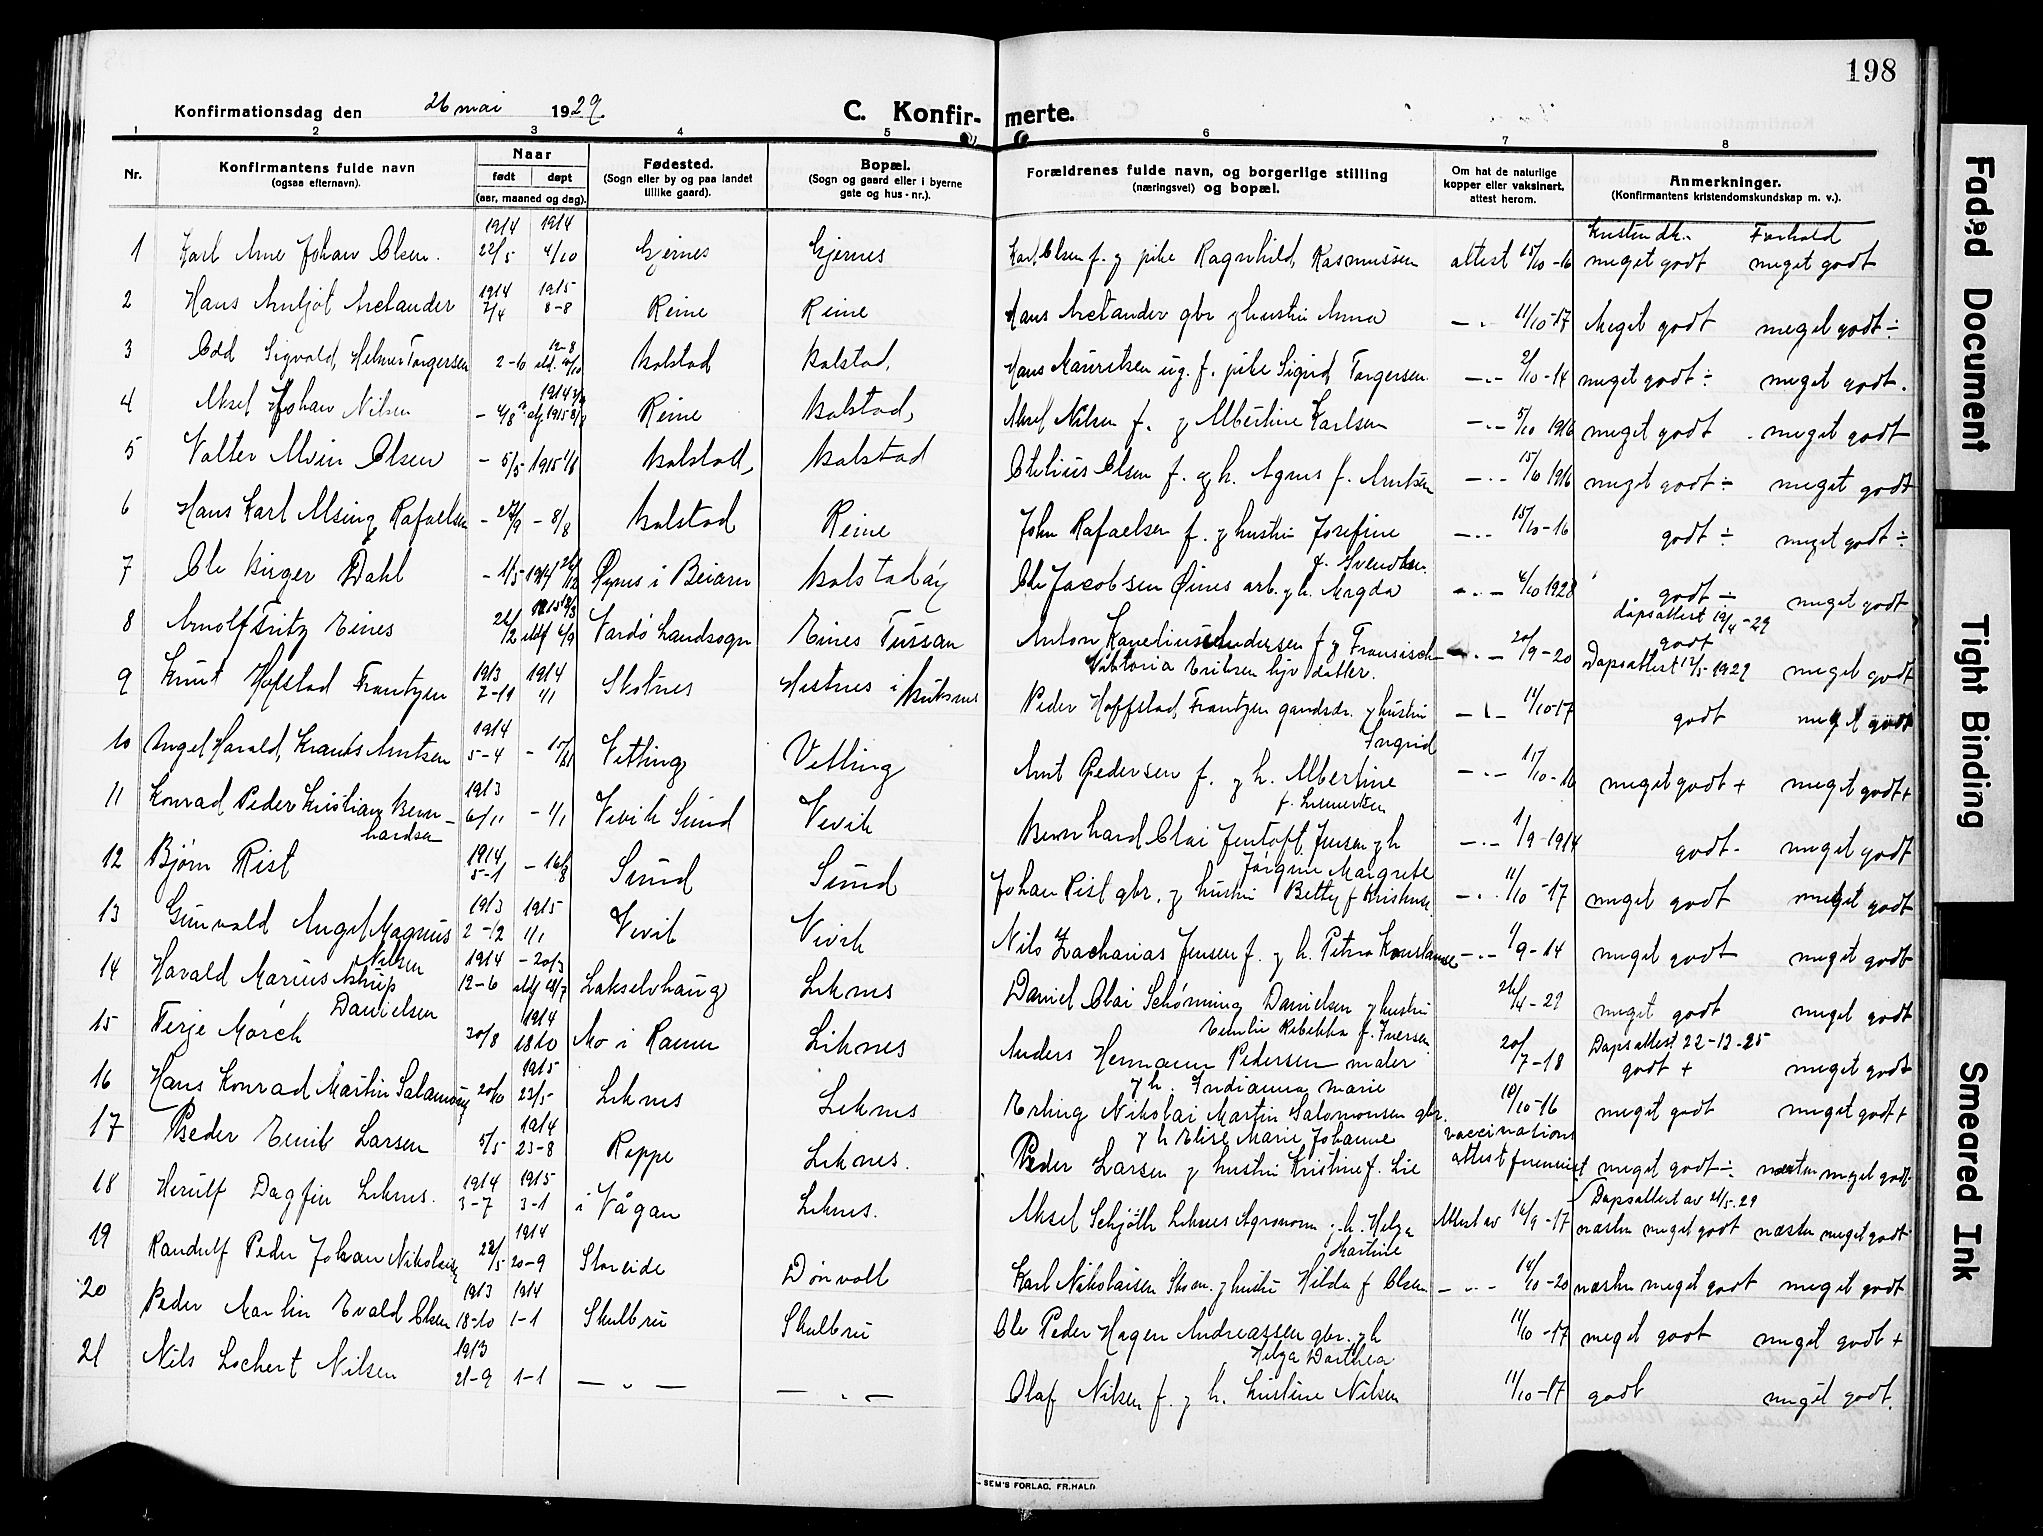 198
Konfirmationsdag den 26 mai 1929
C. Konfir- merte.
1 2 3 4 5 6 7 8
Nr.
Konfirmantens fulde navn
(ogsaa efternavn).
Naar
født døpt
(aar, maaned og dag).
Fødested.
(Sogn eller by og paa landet
tillike gaard).
Bopæl.
(Sogn og gaard eller i byerne
gate og hus-nr.).
Forældrenes fulde navn, og borgerlige stilling
(næringsvei) og bopæl.
Om hat de naturlige
kopper eller vaksinert,
attest herom.
Anmerkninger.
(Konfirmantens kristendomskundskap m. v.).
Kristendk. Forhold
1 Karl Arne Johan Olsen. 1914 22/5 1914 4/10 Gjernes Gjernes Karl Olsen f. g pike Ragnhild Rasmussen attest 15/10-16 meget godt meget godt
2 Hans Arnljot Arctander 1914 7/4 1915 8-8 Reine Reine Hans Arctander gbr g hustru Anna -"- 11/10-17 Meget godt meget godt ÷
3 Odd Sigvald, Helmer Torgersen 2-6 12-8 Balstad Balstad, Hans Mauritsen ug. f. pike Sigrid Torgersen. -"- 2/10-14 meget godt ÷ meget godt.
4 Aksel Johan Nilsen 1914 Reine Balstad, Aksel Nilsen f. g Albertine Karlsen -"- 5/10 1916 meget godt meget godt
5 Valter Alvin Olsen - 5/5 1915 1/8 Balstad, Balstad Otelius Olsen f. g h. Agnes f. Arntsen -"- 15/10 1916 meget godt ÷ meget godt
6 Hans Karl Alsing Rafaelsen - 27/9 - 8/8 Balstad Reine John Rafaelsen f. g hustru Josefine
f. Svendsen. -"- 15/10-16 godt ÷ meget godt ÷
7 Ole Birger Dahl - 1/5 1914 26/12 Øynes i Beiarn Balstadøy Ole Jacobsen Øines arb. g h. Magda -"- 4/10 1928 godt ÷ meget godt
dåpsattest 19/4-29
8 Arnolf Fritz Eines 26/12 Vardø landsogn Eines Tussan Anton Kornelius Andersen f g Fransiska
Viktoria Eriksen hjv datter. -"- 20/9-20 godt
Dåpsattest 12/5-1929 meget godt
9 Knut Hofstad Frantzen 1913 7-19 1914 1/1 Skotnes Hestnes i Buksnes Peder Hoffstad, Frantzen gaardsbr. g hustru
Ingrid -"- 11/10-17 godt meget godt
10 Angel Harald, Krants Arntsen 1914 5-4 - 15/11 Vetting Vetting Arnt Pedersen f. g h. Albertine -"- 11/10-16 meget godt + meget godt+
11 Konrad Peder Kristian Bern-
hardsen 1913 6/11 - 1/1 Vevik Sund Vevik Bernhard Olai Jentoft Jensen g h
Jørgine Margrete -"- 1/9-1914 godt- meget godt
12 Bjørn Rist 1914 5-1 - 16/8 Sund Sund Johan Rist gbr. g hustru Betty f Kristense. -"- 11/10-17 meget godt meget godt
13 Gunvald Angel Magnus
Nilsen 1913 2-12 1915 1/1 Vevik Vevik Nils Zacharias Jensen f. g h. Petra Konstanse -"- 1/9-14 meget godt meget godt
14 Harald Marius Astrup
Danielsen 1914 12-6 - 20/3 Lakselvhaug Leknes Daniel Olai Schønning Danielsen g hustru
Emilie Rebekka f. Iversen. 26/4-29 meget godt meget godt
15 Terje Mørch 30/8 1914 18 10 Mo i Ranen Leknes Anders Hermann Pedersen maler
g h. Indianna Marie 20/7-18 Dåpsattest 22-12-25
godt + meget godt
16 Hans Konrad Martin Salamonsen 20/10 1915 23/5 Leknes Leknes Erling Nikolai Martin Salomonsen gbr.
g h Elise Marie Johanne 10/10-16 meget godt meget godt+
17 Peder Emil Larsen 5/5 1914 23-8 Reppe Leknes. Peder Larsen g hustru Kristine f. Lie vaccinations
attest meget godt ÷ næsten meget godt
18 Herulf Dagfin Leknes. 1914 3-7 1915 3-1 i Vågan Leknes. Aksel Schjøth Leknes Agronom g. h. Helga
Martine Attest av 14/9-17 Dåpsattest av 21/5-29
næsten meget godt næsten meget godt
19 Randulf Peder Johan Nikolaisen 22/5 1914 20-9 Storeide Dønvoll Karl Nikolaisen Skom. g hustru Hilda f Olsen -"- 14/10-20 næsten meget godt meget godt
20 Peder Martin Evald Olsen 1913 18-10 1914 1-1 Skulbru Skulbru Ole Peder Hagen Andreassen gbr. g h
Helga Dorthea 11/10-17 meget godt meget godt +
21 Nils Lockert Nilsen 1913 21-9 1-1 -"- -"- Olaf Nilsen f. g h. Kristine Nilsen 11/10-17 godt meget godt.
SEM'S FORLAG, FR.HALD
Faded Document
Tight Binding
Smeared Ink